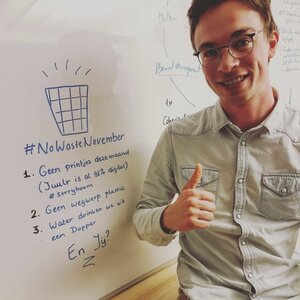 #NoWasteNovember
1. Geen printjes deze maand
(Juult is al 95% digital)
#sorryboom
2. Geen wegwerp plastic
3. Water drinken we uit
een Dopper
En Jij?